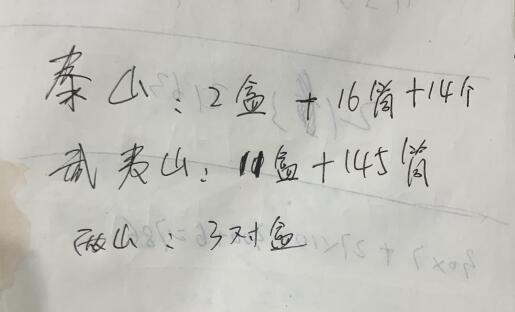 泰山：2盒+16筒+14个
武夷山：11盒+145筒
砀山：3对盒